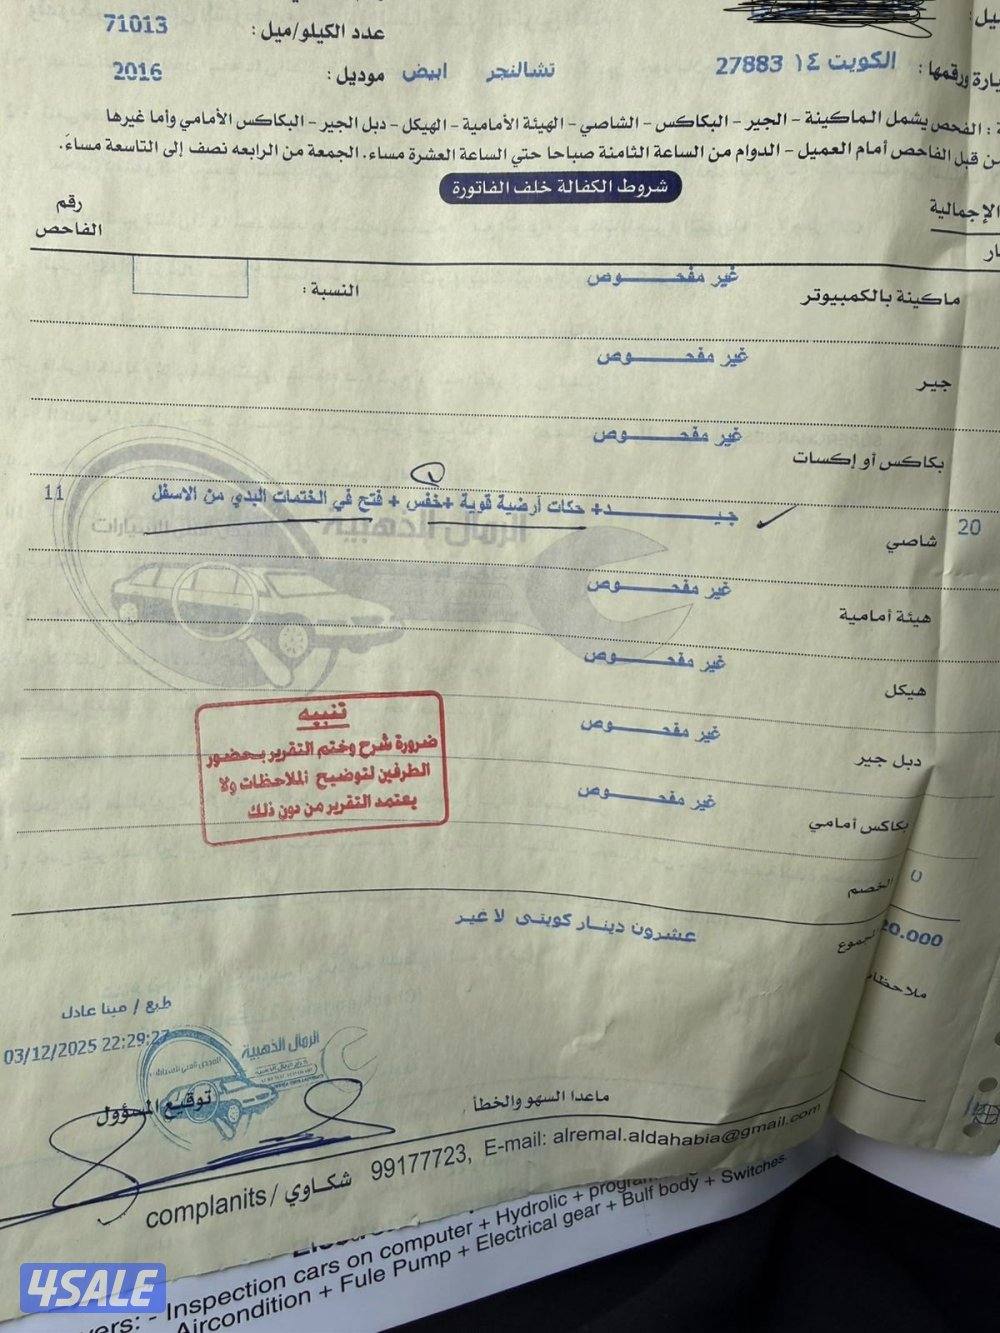 عدد الكيلو/ميل : 71013
الكويت ١٤ 27883 تشالنجر ابيض موديل : 2016
: الفحص يشمل الماكينة - الجير - البكاكس - الشاصي - الهيئة الأمامية - الهيكل - دبل الجير - البكاكس الأمامي وأما غيرها
ن قبل الفاحص أمام العميل - الدوام من الساعة الثامنة صباحا حتي الساعة العشرة مساء. الجمعة من الرابعه نصف إلى التاسعة مساءً.
شروط الكفالة خلف الفاتورة
الإجمالية
رقم
الفاحص
ماكينة بالكمبيوتر غير مفحـــوص النسبة :
جير غير مفحـــوص
بكاكس أو إكسات غير مفحـــوص
20 شاصي جيـــد+ حكات أرضية قوية +خفس + فتح في الختمات البدي من الاسفل 11
الرمال الذهبية
هيئة أمامية غير مفحـــوص
هيكل غير مفحـــوص
دبل جير غير مفحـــوص
بكاكس أمامي غير مفحـــوص
تنبيه
ضرورة شرح وختم التقرير بحضور
الطرفين لتوضيح الملاحظات ولا
يعتمد التقرير من دون ذلك
الخصم 0
20.000 عشرون دينار كويتى لا غير
طبع / مينا عادل
03/12/2025 22:29:27
الرمال الذهبية
توقيع المسؤول
ماعدا السهو والخطأ
complanits/ شكاوي 99177723, E-mail: alremal.aldahabia@gmail.com
- Inspection cars on computer + Hydrolic +
Aircondition + Fule Pump + Electrical gear + Bulf body + Switches.
4SALE